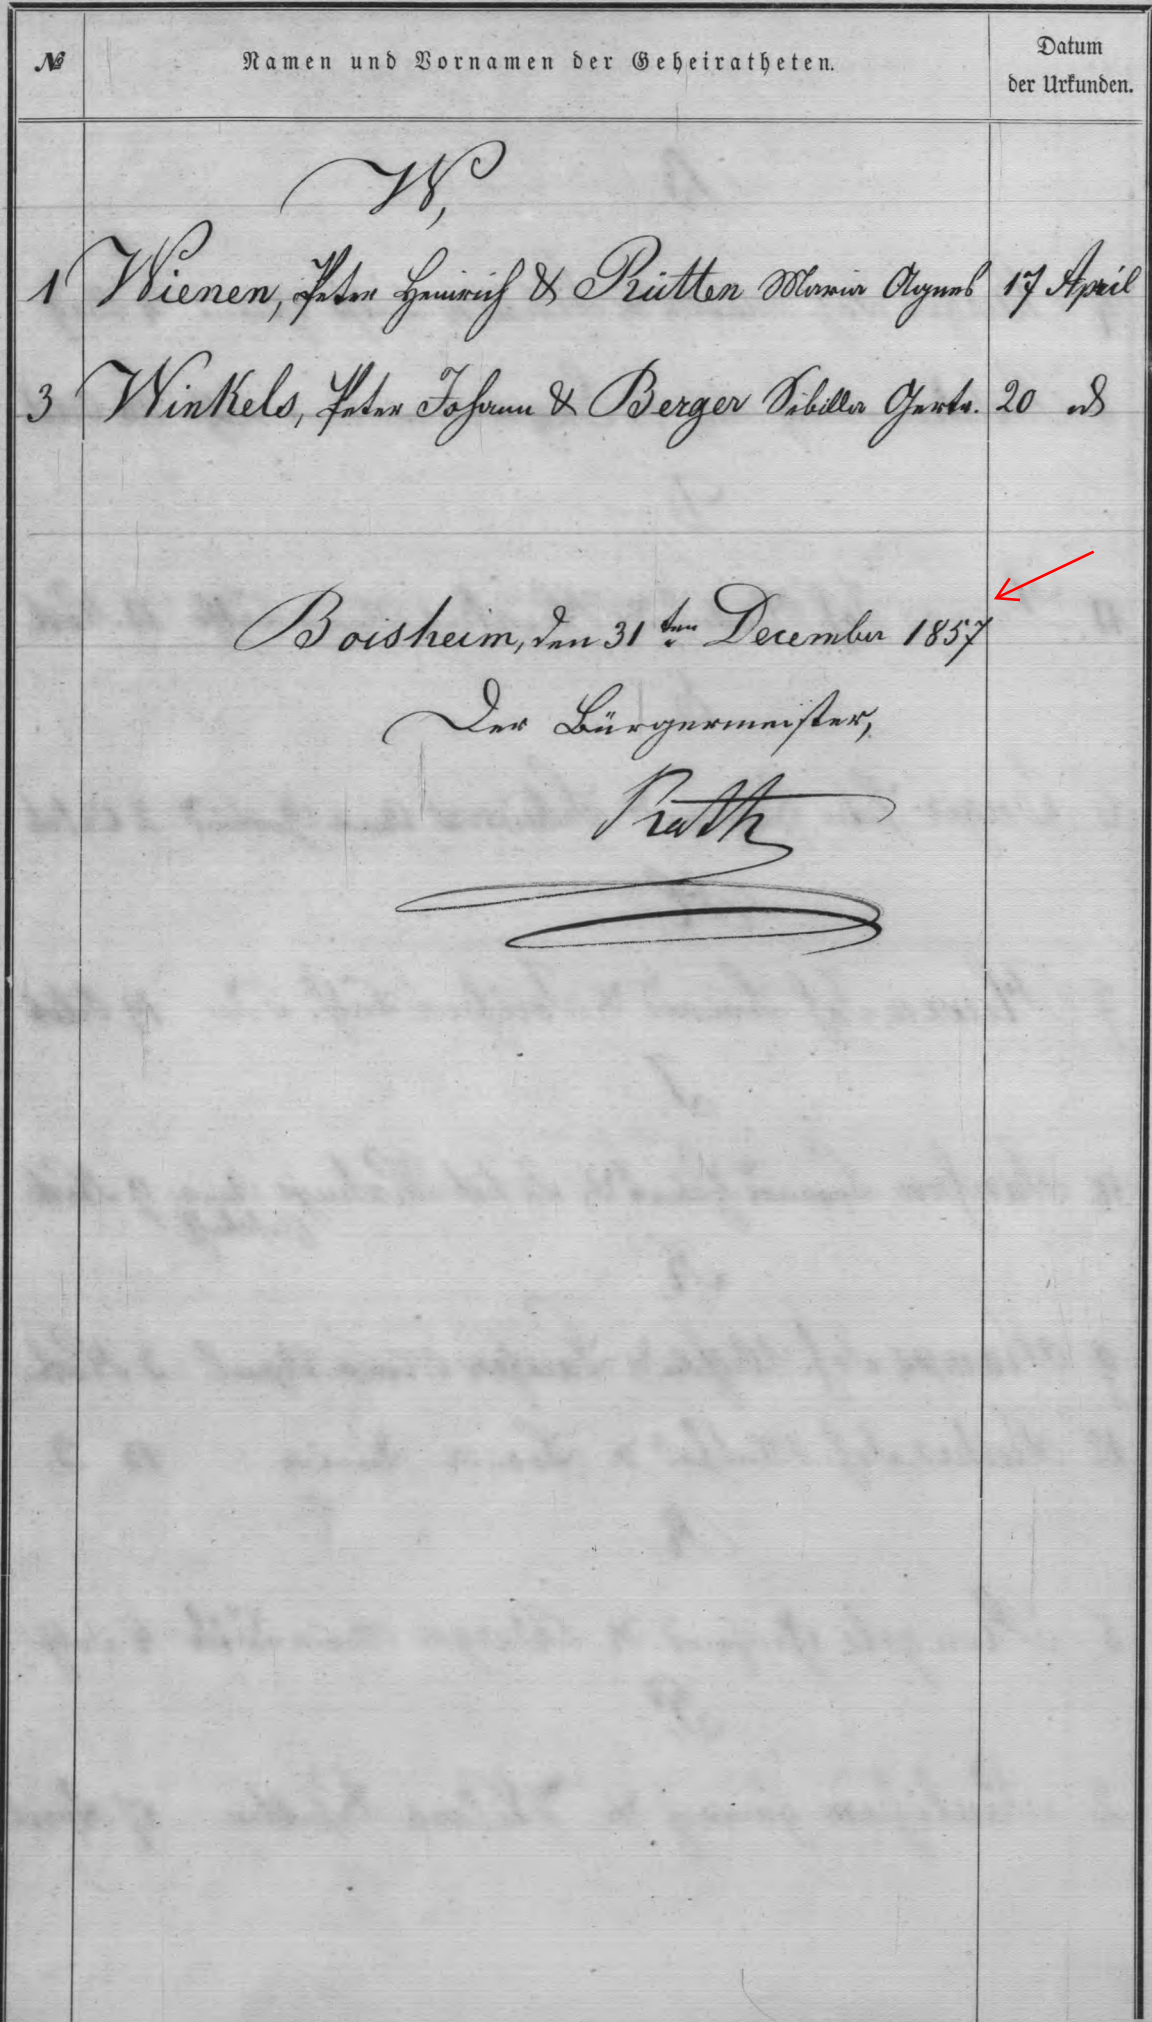 № Namen und Vornamen der Geheiratheten. Datum der Urkunden.
W,
1 Wienen, Peter Heinrich & Rütten Maria Agnes 17 April
3 Winkels, Peter Johann & Berger Sibilla Gertr. 20 id
Boisheim, den 31ten December 1857
Der Bürgermeister,
Rath